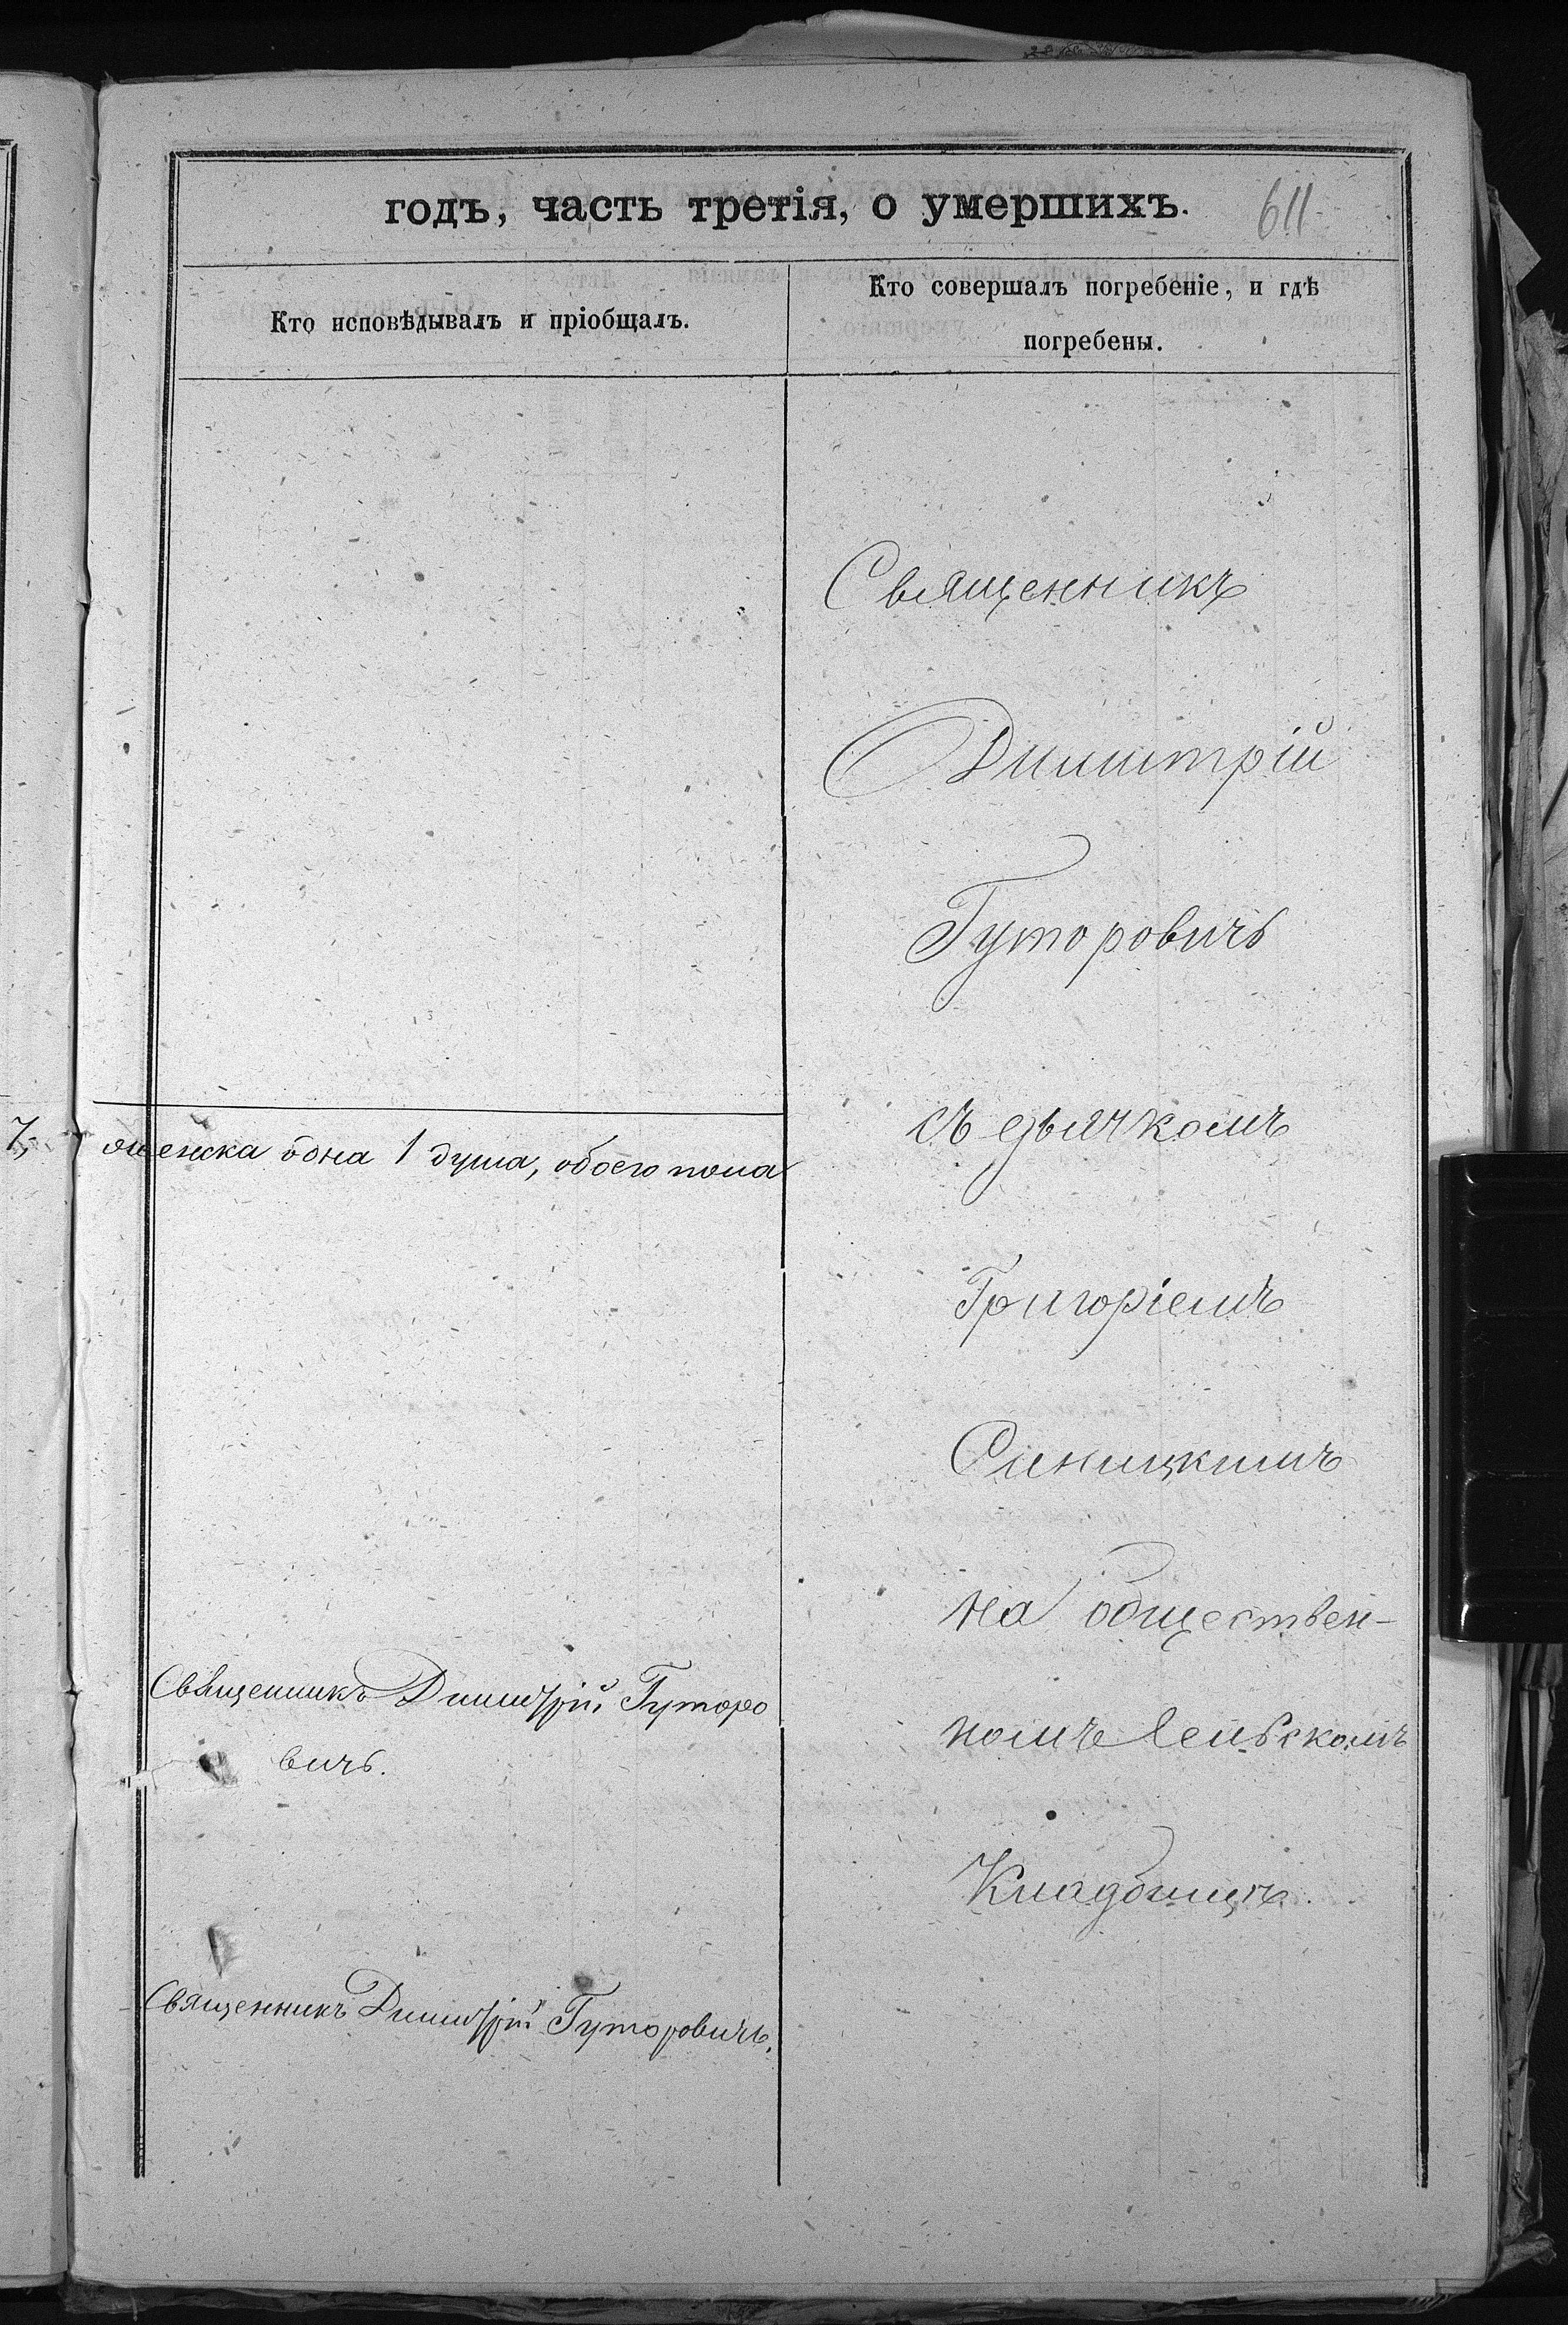 годъ, часть третія, о умершихъ.
611
Кто исповѣдывалъ и пріобщалъ.
Кто совершалъ погребеніе, и гдѣ
погребены.
7,
одна 1 душа, обоего пола
Священникъ Димитрій Гуторо
вичъ.
Священникъ Димитрій Гуторовичъ.
Священникъ
Димитрій
Гуторовичъ
съ дьячкомъ
Григоріемъ
Синицкимъ
на обществен-
номъ
Кладбищѣ.